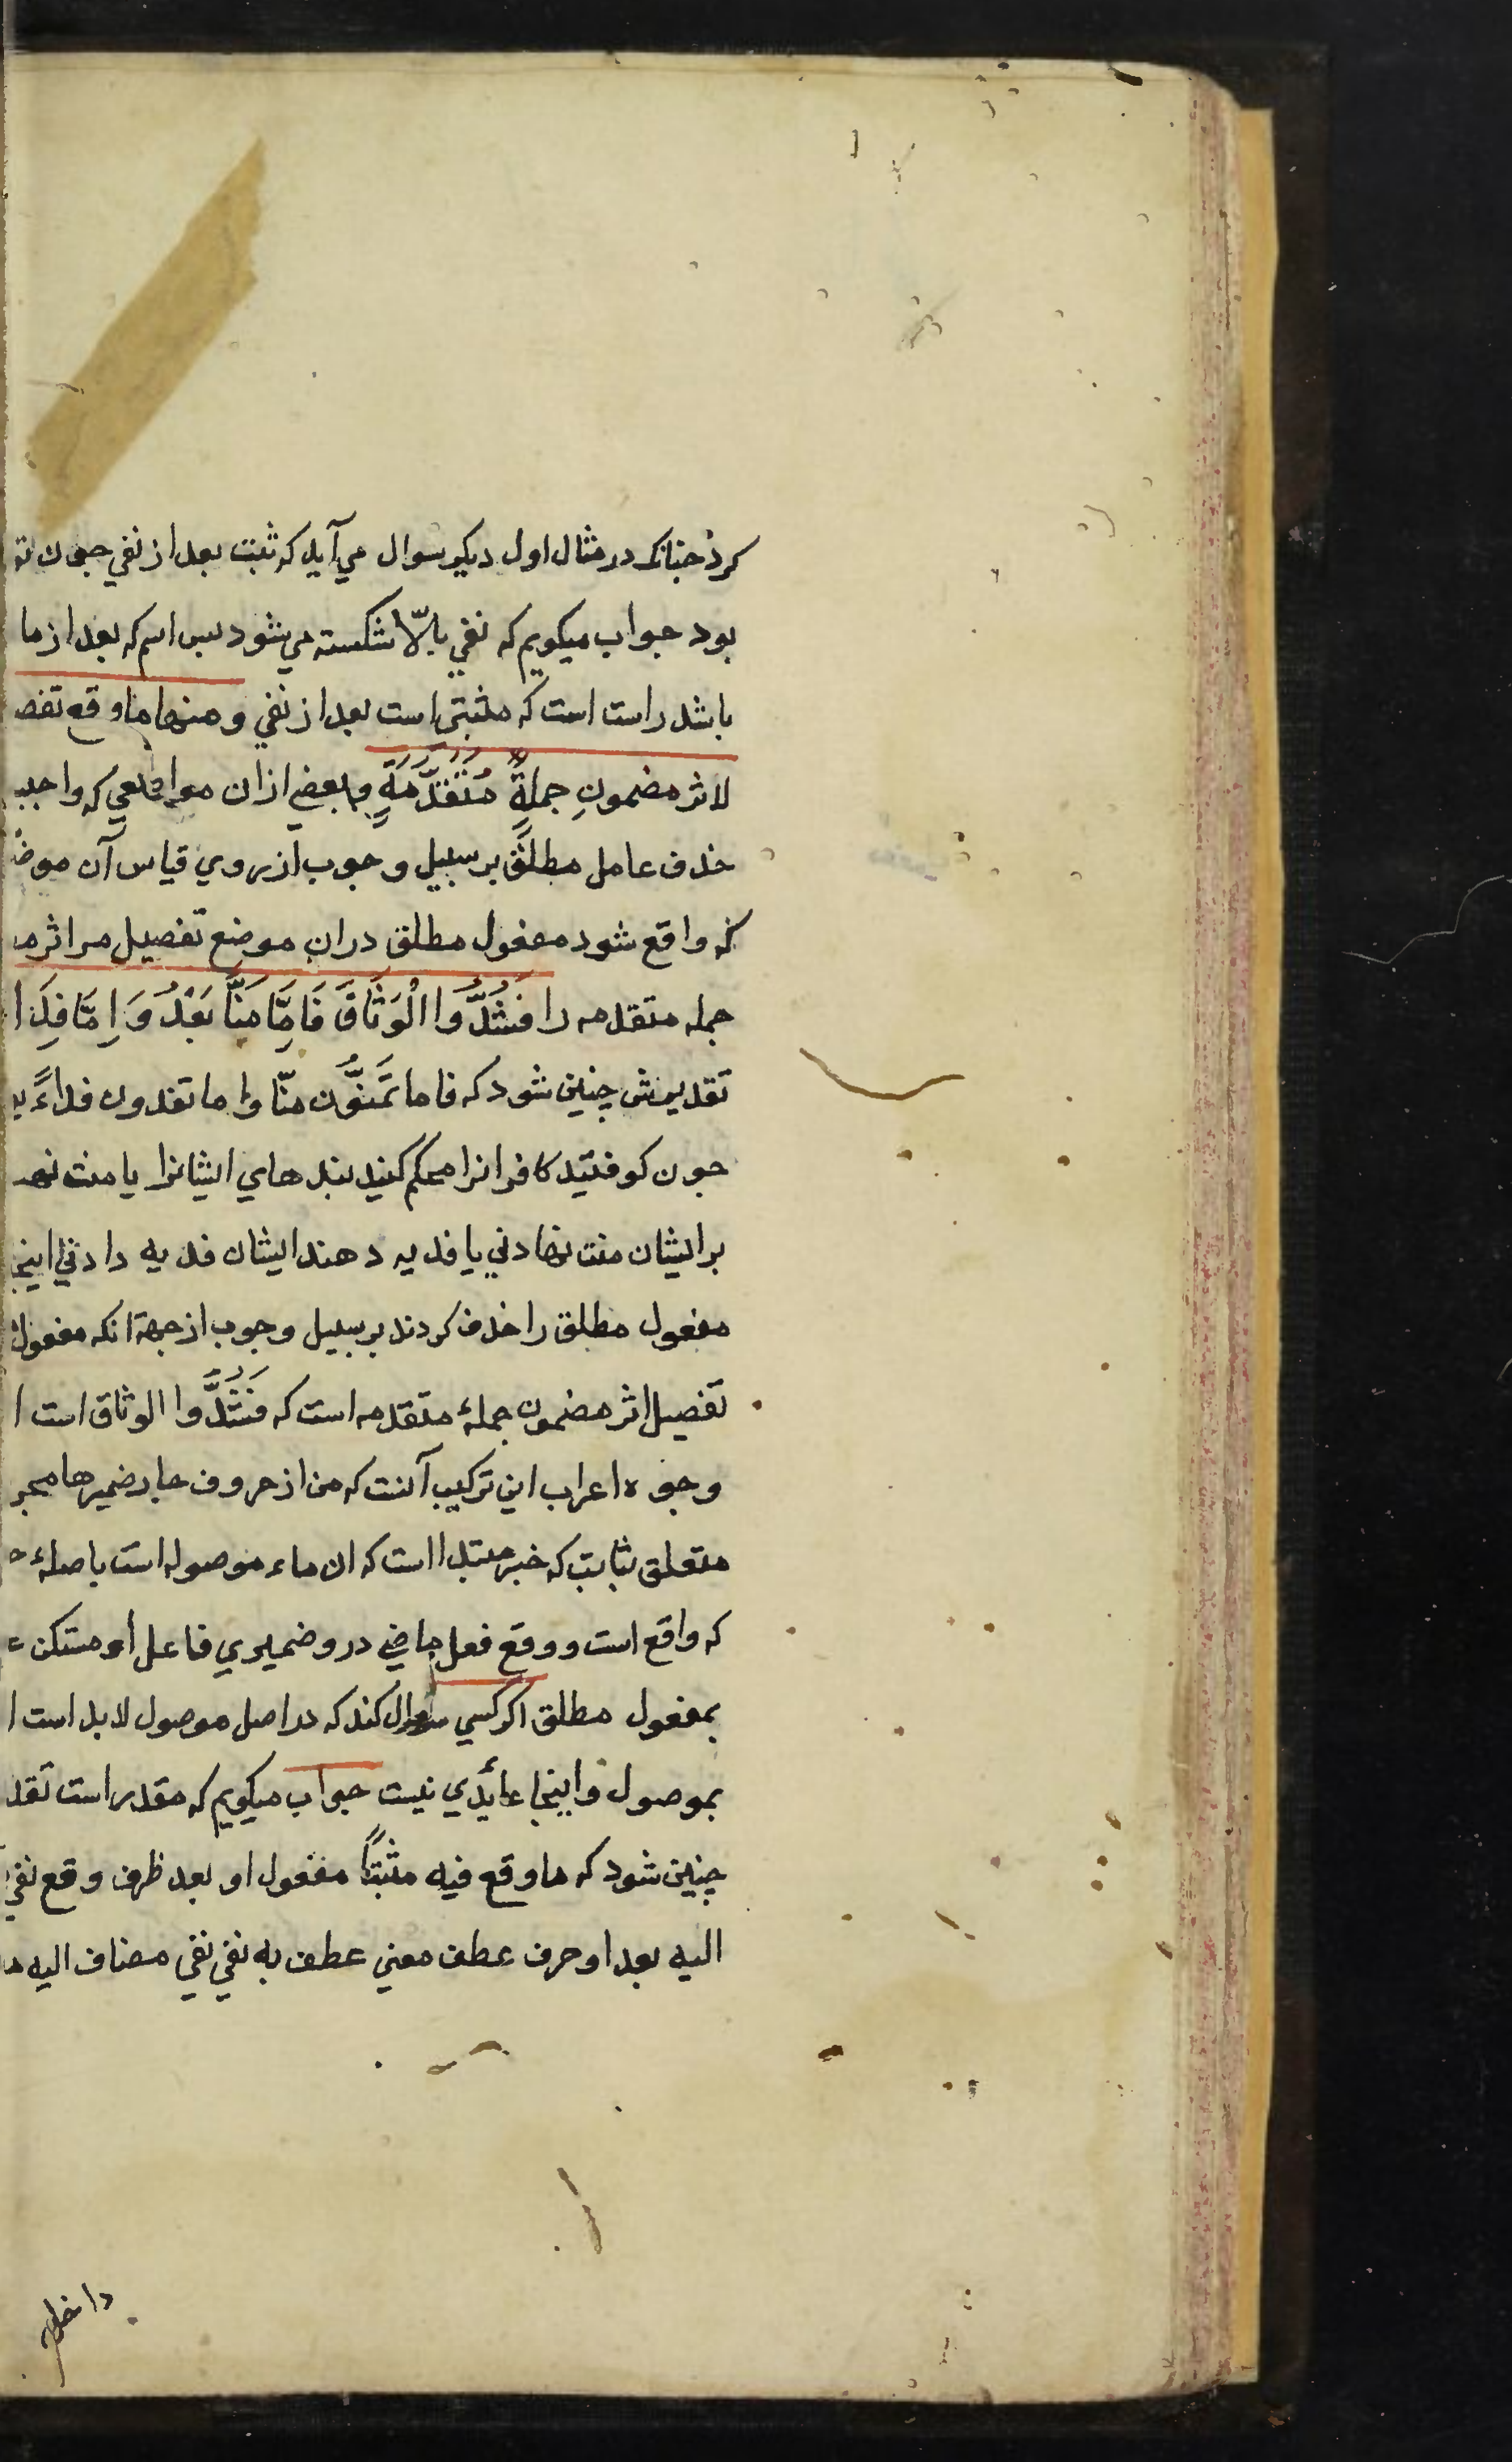 کرد چنانک در مثال اول دیکر سوال می آید که مثبت بعد از نفی چون
بود جواب میکویم که نفی بالّا شکسته می شود پس اسم که بعد از ما
باشد راست است که مثبتی است بعد از نفی ومنها ما وقع تفص
لاثر مضمونِ جملةٍ مُتَقَدِّمَةٍ وبعضی از ان مواضعی که واجب
حذف عامل مطلق بر سبیل وجوب از روی قیاس آن موض
که واقع شود مفعول مطلق دران موضع تفصیل مر اثر م
جمله متقدمه را فَشُدُّوا الْوَثَاقَ فَاِمَّا مَنًّا بَعْدُ وَاِمَّا فِدَا
تقدیرش چنین شود که فاما تَمُنُّون منّا واما تفدون فداءً
چون کوفتید کافرانرا محکم کنید بندهای ایشانرا یا منت نهد
بر ایشان منت نهادنی یا فدیه دهند ایشان فدیه دادنی اینجا
مفعول مطلق را حذف کردند بر سبیل وجوب از جهة انکه مفعول
تفصیل اثر مضمون جملۀ متقدمه است که فَشُدُّوا الوثاق است ا
وجوه اعراب این ترکیب آنست که من از حروف جار ضمیر ها مجر
متعلق بثابت که خبر مبتدا است که ان ماء موصوله است با صلۀ
که واقع است و وقع فعل ماضی درو ضمیری فاعل او مستکن
بمفعول مطلق اکر کسی سوال کند که در اصل موصول لابد است ا
بموصول واینجا عائدی نیست جواب میکویم که مقدر است تقد
چنین شود که ما وقع فیه مثبتًا مفعول او بعد ظرف وقع نفی
الیه بعد او حرف عطف معنی عطف به نفی نفی مضاف الیه
داخل